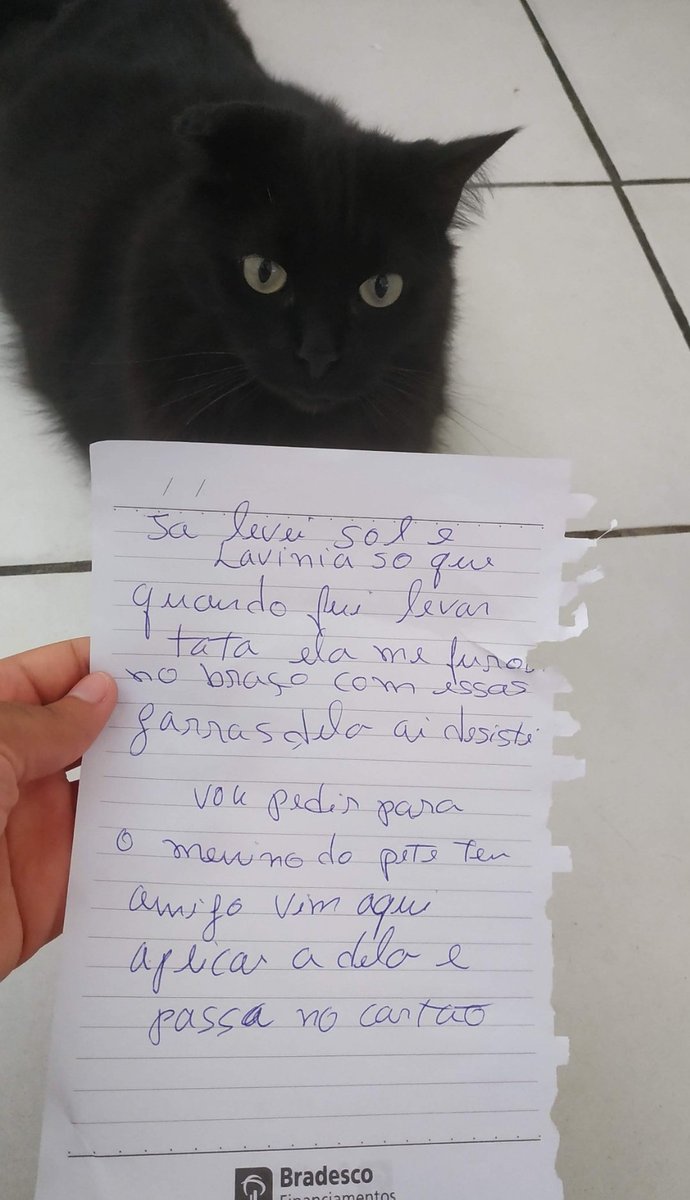 / /
Ja levei sol e
Lavinia so que
quando fui levar
tata ela me furou
no braço com essas
garras dela ai desisti
vou pedir para
o menino do pete teu
amigo vim aqui
aplicar a dela e
passa no cartão
Bradesco
Financiamentos